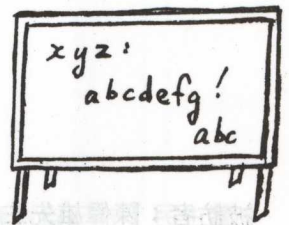 xyz:
abcdefg!
abc